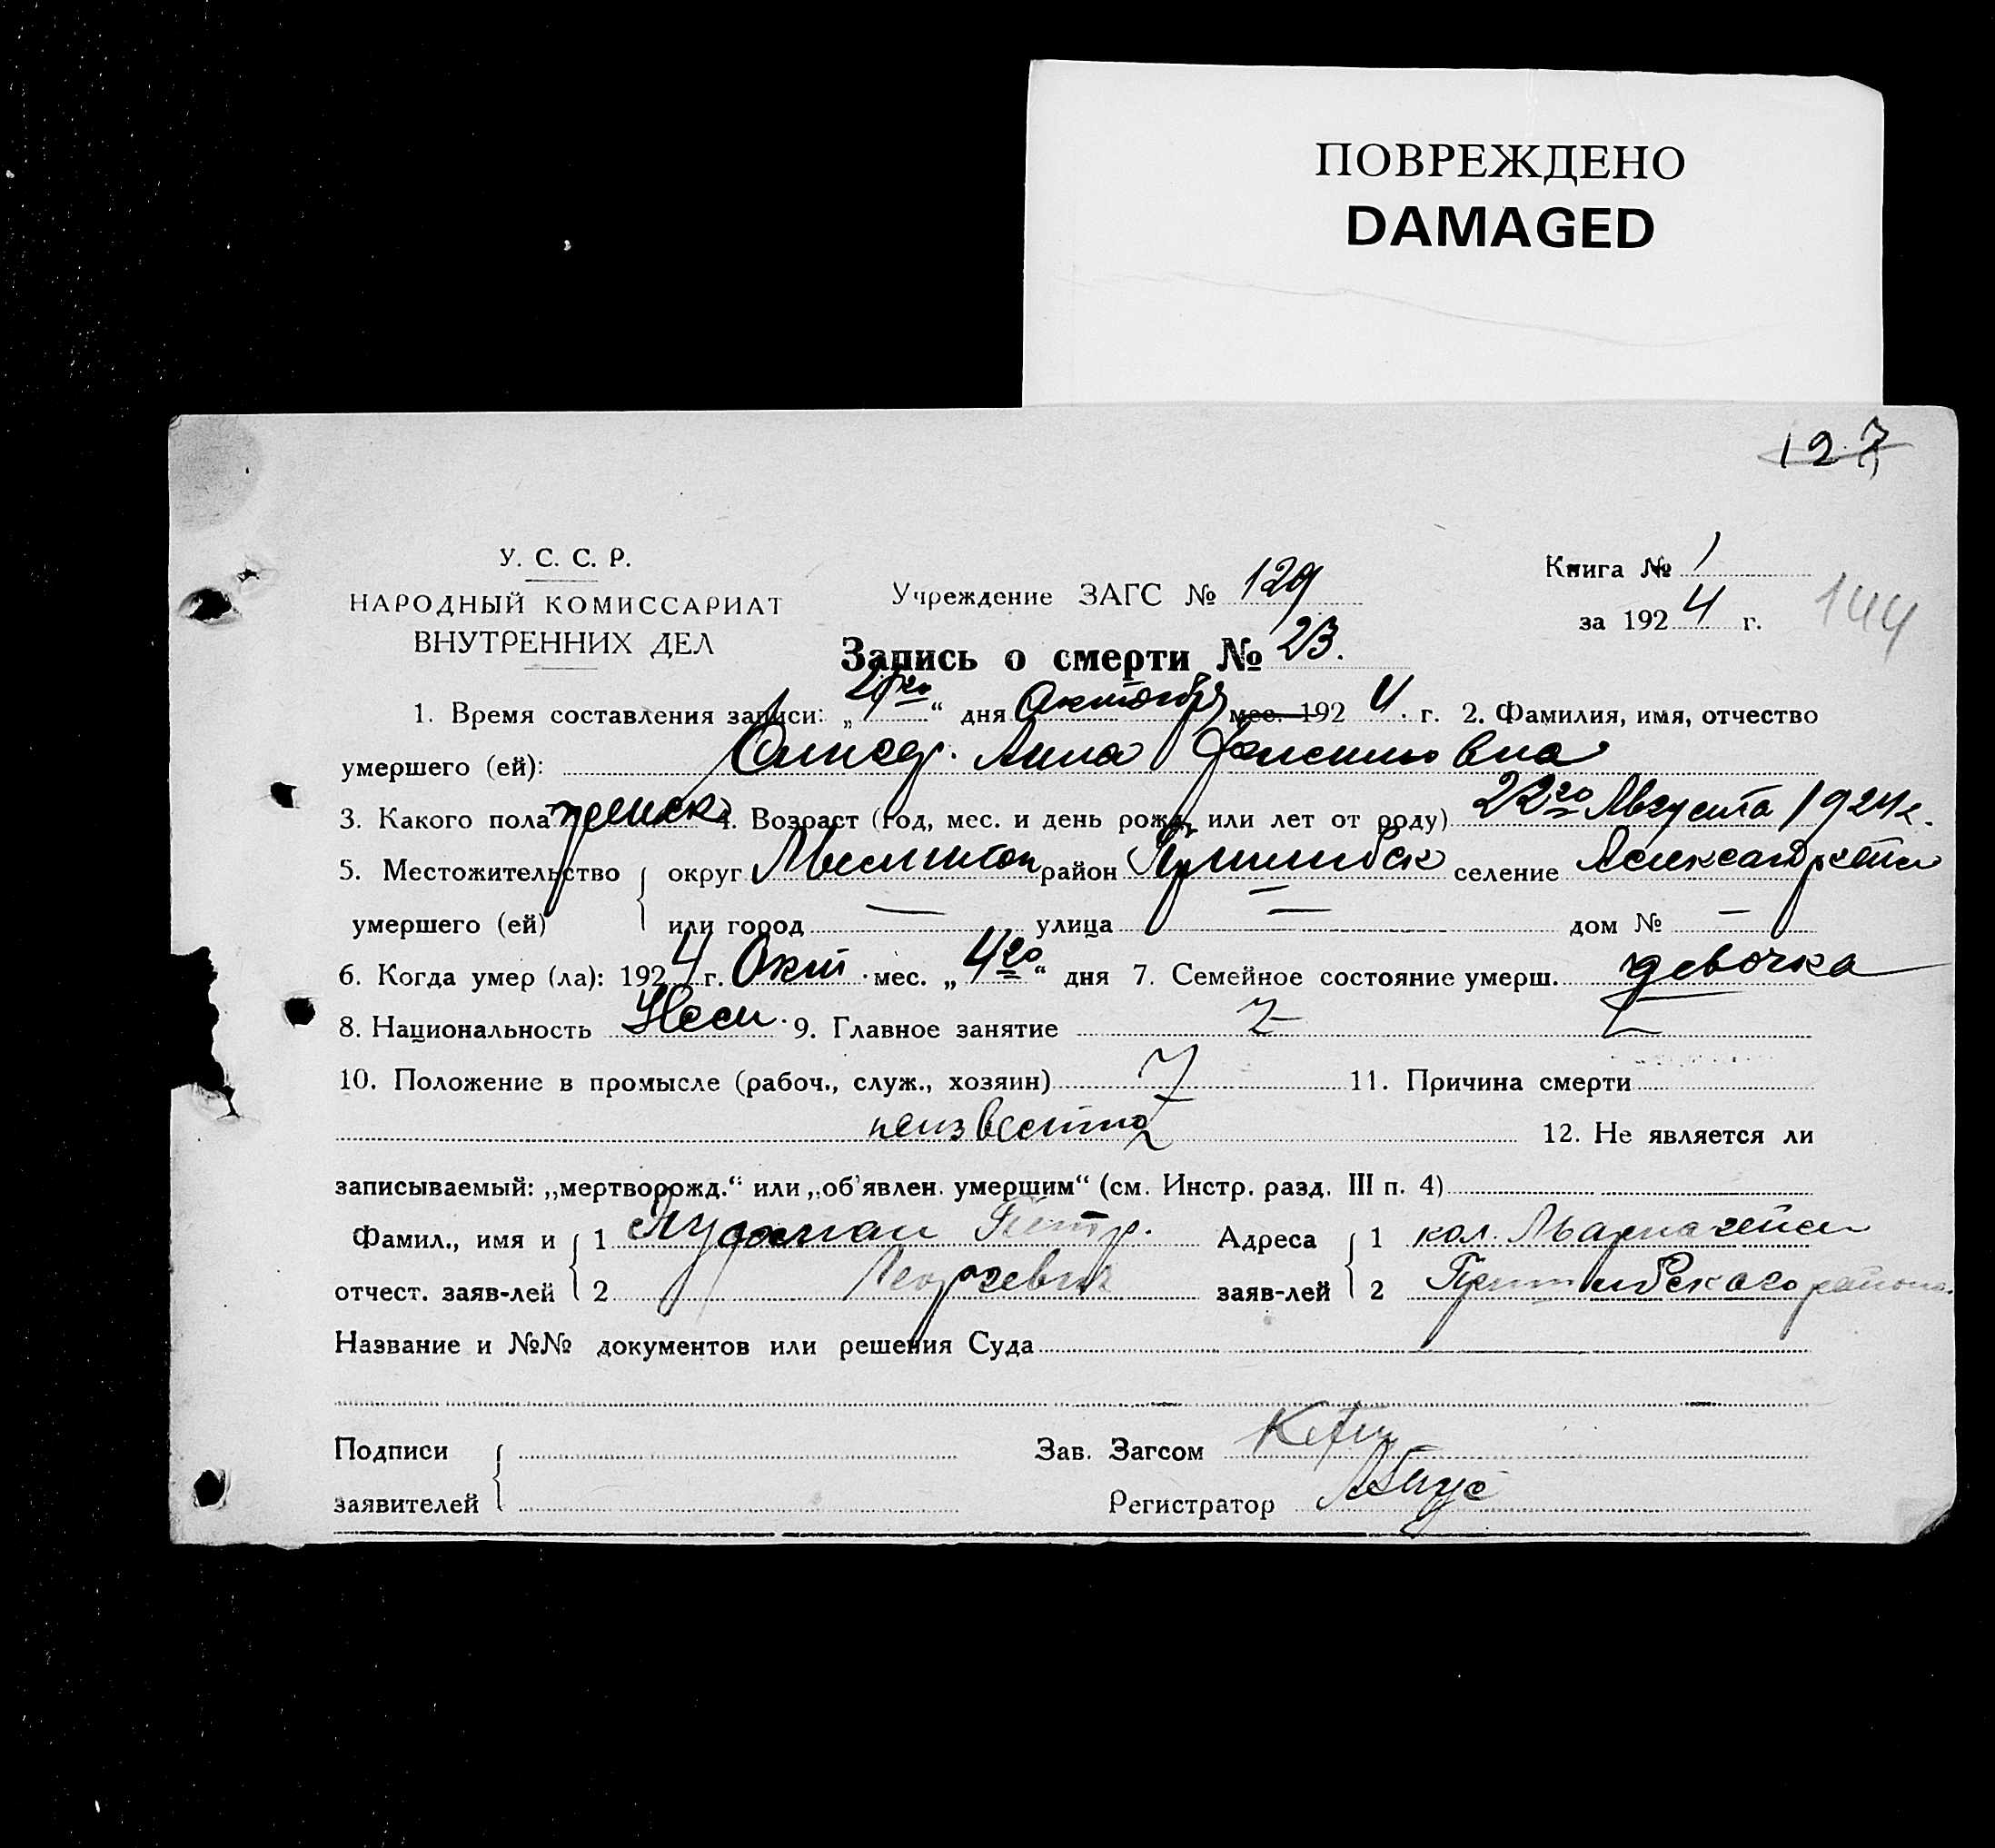 ПОВРЕЖДЕНО
DAMAGED
127
У. С. С. Р.
НАРОДНЫЙ КОМИССАРИАТ
ВНУТРЕННИХ ДЕЛ
Учреждение ЗАГС № 129
Книга № 1
за 1924 г.
144
Запись о смерти № 23.
1. Время составления записи: „ “ дня Октября мес. 1924 г. 2. Фамилия, имя, отчество
умершего (ей): Анна
3. Какого пола женск 4. Возраст (год, мес. и день рожд. или лет от роду) 22го Августа 1924г.
5. Местожительство округ район селение
умершего (ей) или город — улица — дом № —
6. Когда умер (ла): 1924 г. Окт. мес. „4го“ дня 7. Семейное состояние умерш. девочка
8. Национальность 9. Главное занятие
10. Положение в промысле (рабоч., служ., хозяин) 11. Причина смерти
неизвестно 12. Не является ли
записываемый: „мертворожд.“ или „об'явлен. умершим“ (см. Инстр. разд. III п. 4)
Фамил., имя и 1 Петр. Адреса 1 кол.
отчест. заяв-лей 2 Георгевич заяв-лей 2 района.
Название и №№ документов или решения Суда
Подписи Зав. Загсом
заявителей Регистратор